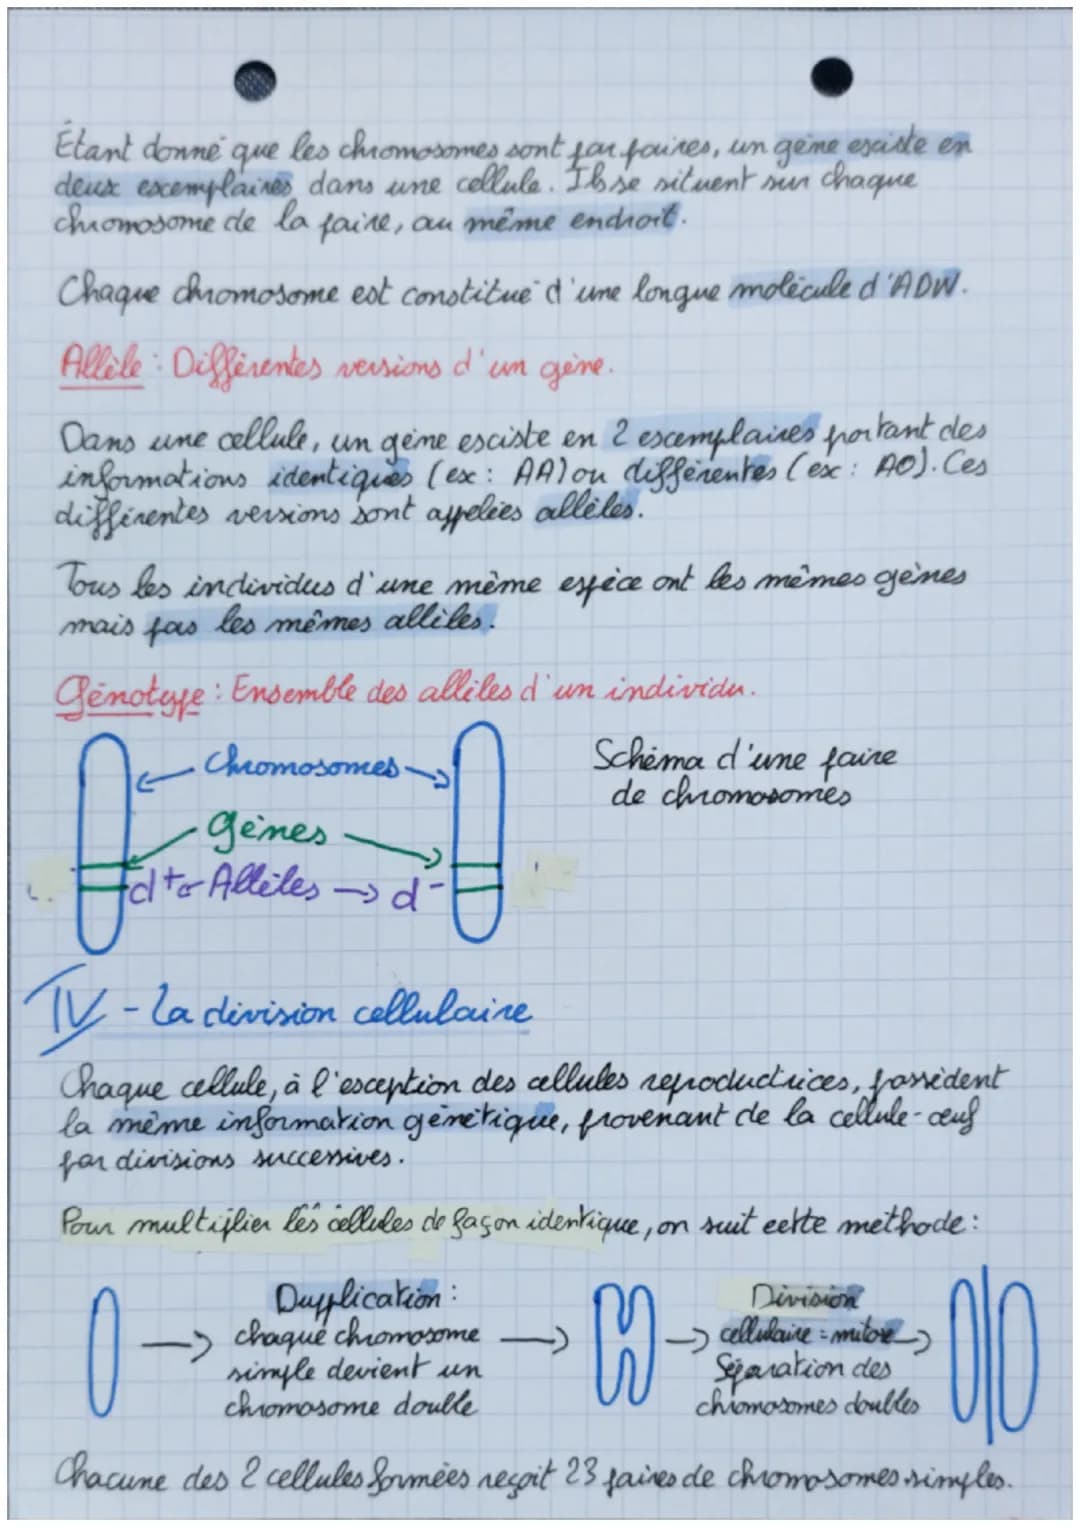 Étant donné que les chromosomes sont par paires, un gène existe en
deux exemplaires dans une cellule. Ils se situent sur chaque
chromosome de la paire, au même endroit.
Chaque chromosome est constitué d'une longue molécule d'ADN.
Allèle : Différentes versions d'un gène.
Dans une cellule, un gène existe en 2 exemplaires portant des
informations identiques (ex : AA) ou différentes (ex : AO). Ces
différentes versions sont appelées allèles.
Tous les individus d'une même espèce ont les mêmes gènes
mais pas les mêmes allèles.
Génotype : Ensemble des allèles d'un individu.
Chromosomes
Schéma d'une paire
de chromosomes
Gènes
d+ Allèles → d-
IV - La division cellulaire
Chaque cellule, à l'exception des cellules reproductrices, possèdent
la même information génétique, provenant de la cellule-œuf
par divisions successives.
Pour multiplier les cellules de façon identique, on suit cette méthode :
Duplication :
chaque chromosome
simple devient un
chromosome double
Division
cellulaire = mitose
Séparation des
chromosomes doubles
Chacune des 2 cellules formées reçoit 23 paires de chromosomes simples.